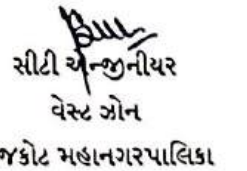 સીટી એન્જીનીયર
વેસ્ટ ઝોન
જકોટ મહાનગરપાલિકા